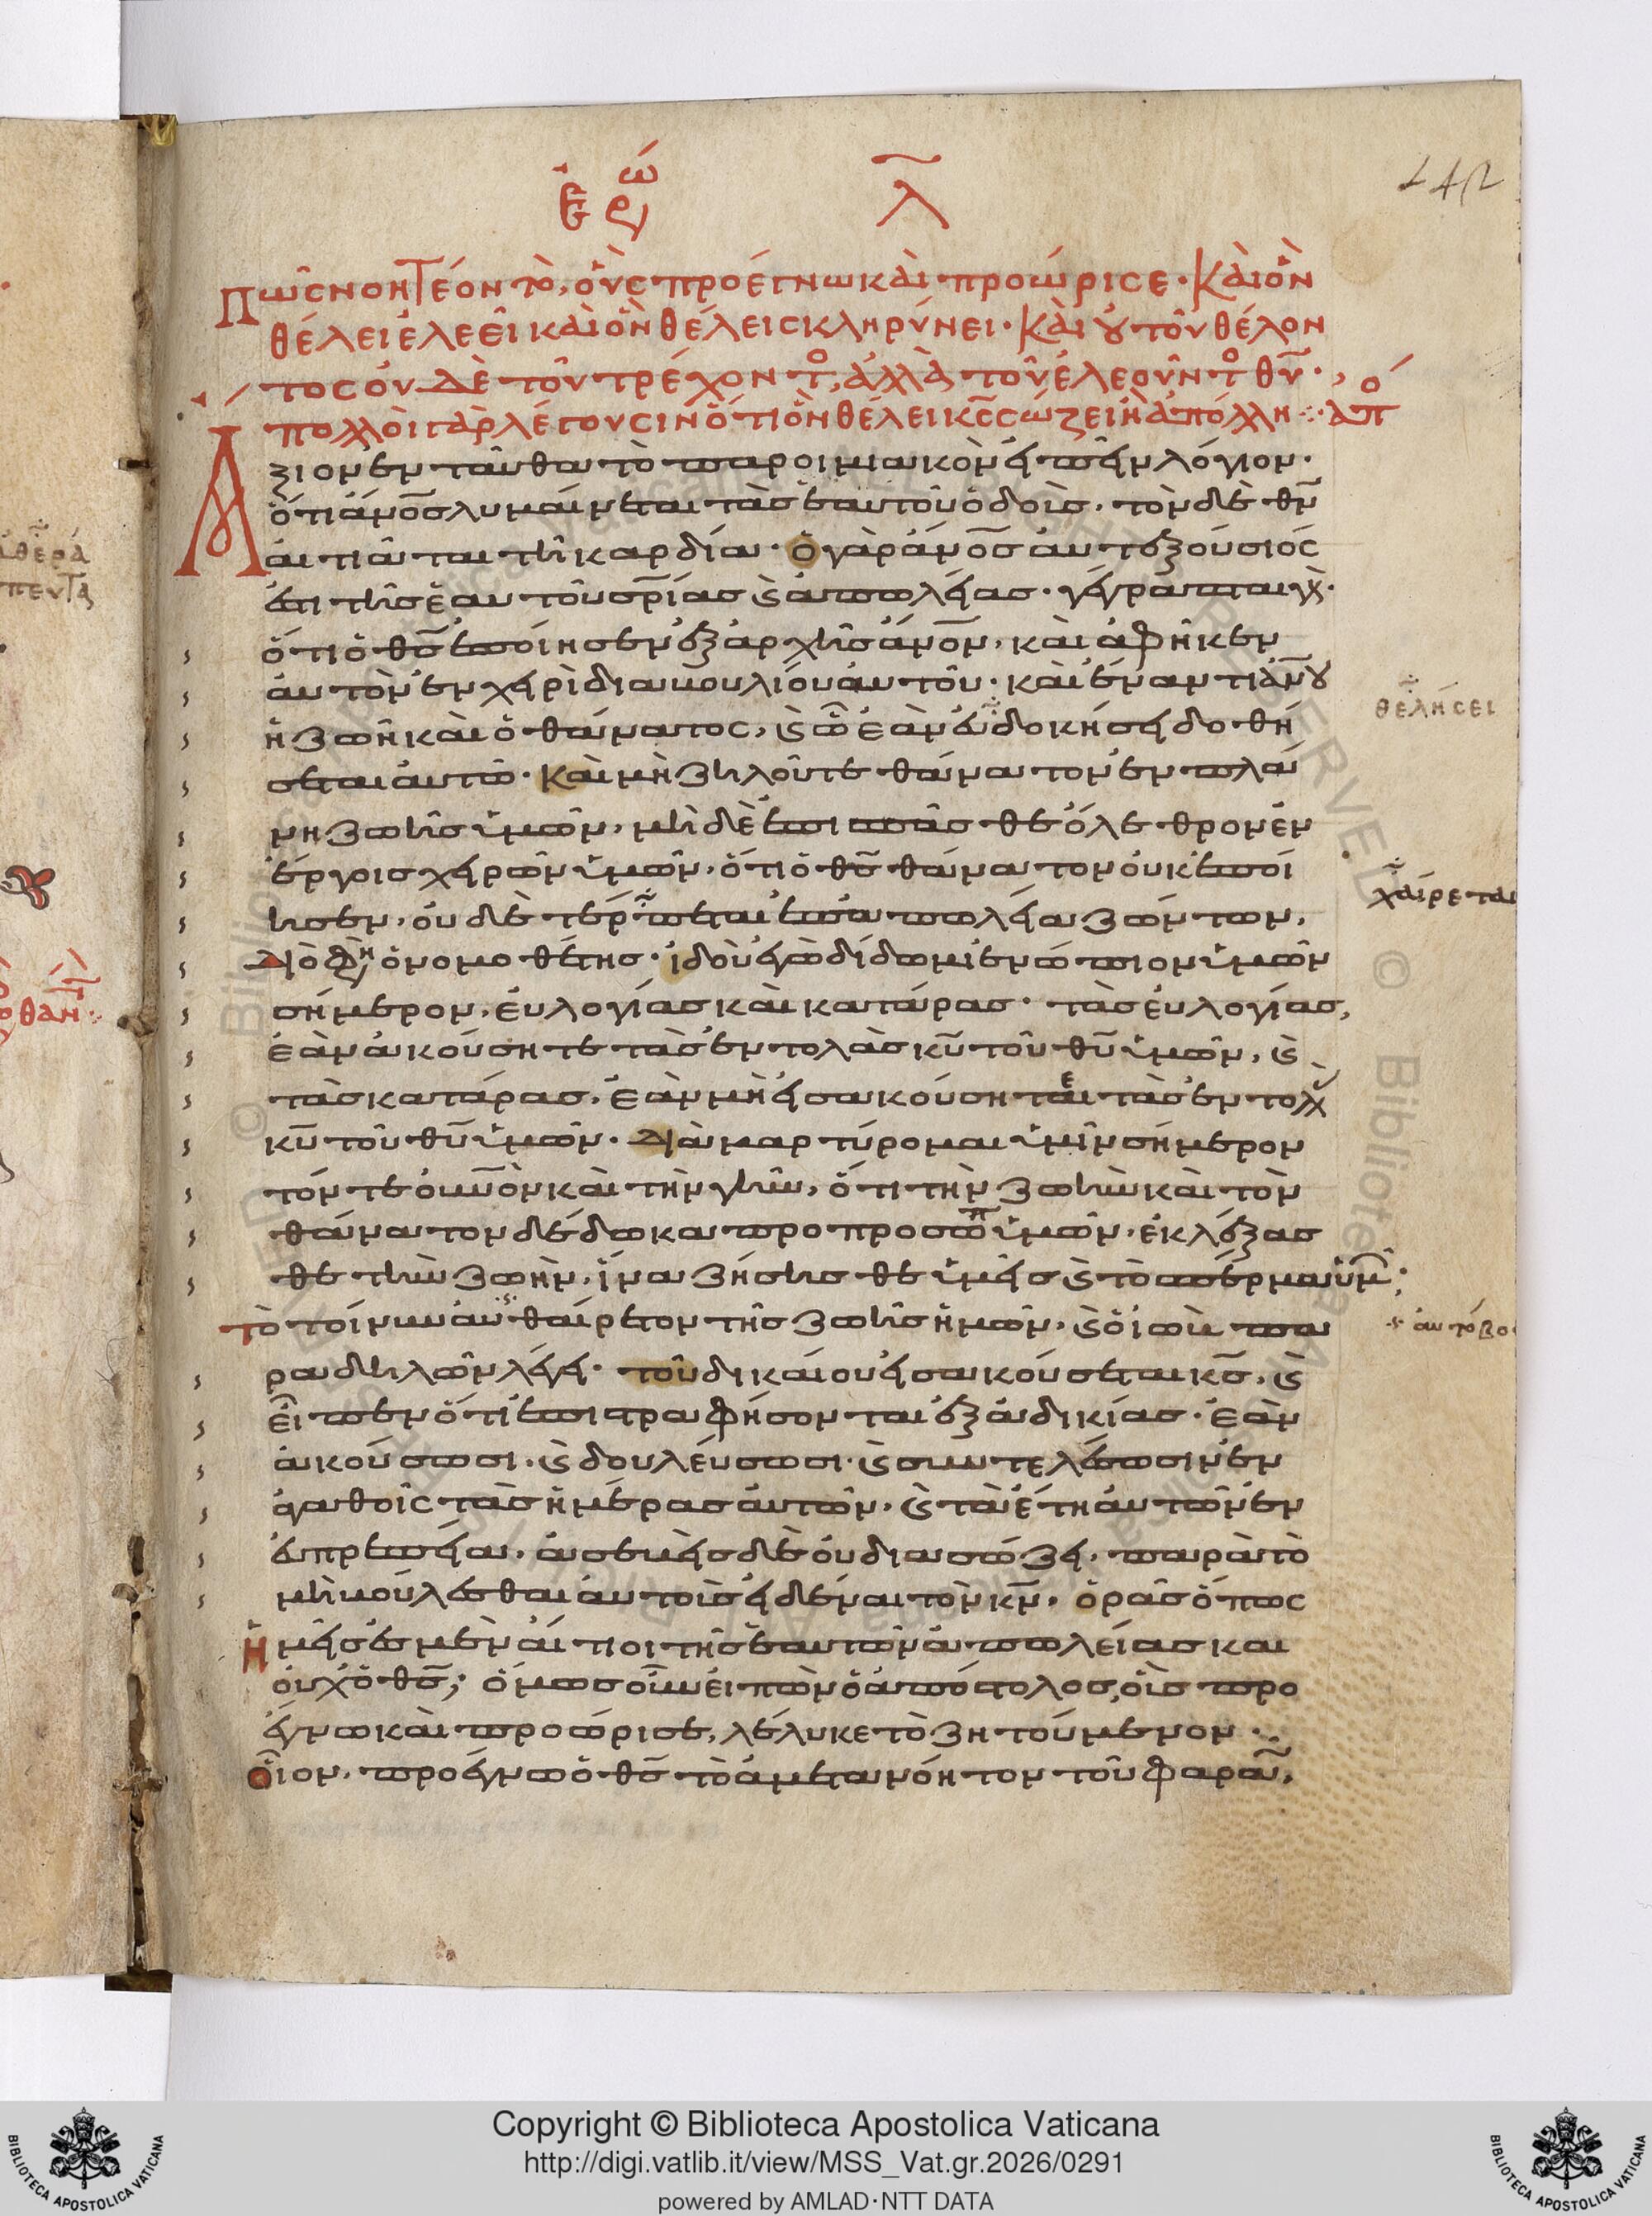 ἐρω λ
142
Πῶς νοητέον τὸ, οὓς προέγνω καὶ προώρισε · Καὶ ὃν
θέλει ἐλεεῖ καὶ ὃν θέλει σκληρύνει · Καὶ ȣ τοῦ θέλον
τος οὐδὲ τοῦ τρέχοντο, ἀλλὰ τοῦ ἐλεοῦντο θυ ·
πολλοὶ γὰρ λέγουσιν ὅτι ὃν θέλει κς σώζει ἢ ἀπόλλη · απο
Ἄξιον ἐνταῦθα τὸ παροιμιακὸν εἰπεῖν λόγιον ·
ὅτι ἀνος λυμαίνεται τὰς ἑαυτοῦ ὁδοὺς, τὸν δὲ θν
αἰτιᾶται τῆ καρδία · ὁ γὰρ ἀνος αὐτεξούσιός
ἐστι τῆς ἑαυτοῦ σρίας ϗ ἀπωλείας · γέγραπται γὰρ ·
ὅτι ὁ θς ἐποίησεν ἐξ ἀρχῆς ἀνον, καὶ ἀφῆκεν
αὐτὸν ἐν χειρὶ διαβουλίου αὐτοῦ · καὶ ἔναντι ἀνȣ
ἡ ζωὴ καὶ ὁ θάνατος, ϗ ὃ ἐὰν εὐδοκήσει δοθή
σεται αὐτῶ · καὶ μὴ ζηλοῦτε θάνατον ἐν πλά
θελήσει
νη ζωῆς ὑμῶν, μὴ δὲ ἐπισπᾶσθε ὄλεθρον ἐν
ἔργοις χειρῶν ὑμῶν, ὅτι ὁ θς θάνατον οὐκ ἐποί
ησεν, οὐδὲ τέρπεται ἐπ' ἀπωλεία ζώντων,
χαίρεται
Διό φη ὁ νομοθέτης · ἰδοὺ ἐγὼ δίδωμι ἐνώπιον ὑμῶν
σήμερον, εὐλογίας καὶ κατάρας · τὰς εὐλογίας,
ἐὰν ἀκούσητε τὰς ἐντολὰς κυ τοῦ θυ ὑμῶν, ϗ
τὰς κατάρας, ἐὰν μὴ εἰσακούσητε τὰς ἐντολὰς
κυ τοῦ θυ ὑμῶν · Διαμαρτύρομαι ὑμῖν σήμερον
τόν τε οὐνὸν καὶ τὴν γῆν, ὅτι τὴν ζωὴν καὶ τὸν
θάνατον δέδωκα προ προσώπ ὑμῶν, ἐκλέξας
θε τὴν ζωὴν, ἵνα ζήσησθε ὑμεῖς ϗ τὸ σπέρμα ὑμ ·
τὸ τοίνυν αὐθαίρετον τῆς ζωῆς ἡμῶν, ϗ ὁ ἰὼβ πα
αὐτόβο
ραδηλῶν λέγει · τοῦ δικαίου εἰσακούσεται κς, ϗ
εἶπεν ὅτι ἐπιστραφήσονται ἐξ ἀδικίας · ἐὰν
ἀκούσωσι, ϗ δουλεύσωσι · ϗ συντελέσωσιν ἐν
ἀγαθοῖς τὰς ἡμέρας αὐτῶν, ϗ τὰ ἔτη αὐτῶν ἐν
εὐπρεπεία, ἀσεβεῖς δὲ οὐ διασώζει, παρὰ τὸ
μὴ βούλεσθαι αὐτοὺς εἰδέναι τὸν κν, ὁρᾶς ὅπως
ἡμεῖς ἐσμὲν αἴτιοι τῆς ἑαυτῶν ἀπωλείας και
οὐχ ὁ θς; ὅμως οὖν εἰπὼν ὁ ἀπόστολος, οὓς προ
έγνω καὶ προώρισε, λέλυκε τὸ ζητούμενον ·
οἷον, προέγνω ὁ θς τὸ ἀμετανόητον τοῦ φαραώ,
Copyright © Biblioteca Apostolica Vaticana
http://digi.vatlib.it/view/MSS_Vat.gr.2026/0291
powered by AMLAD·NTT DATA
BIBLIOTECA APOSTOLICA VATICANA
BIBLIOTECA APOSTOLICA VATICANA